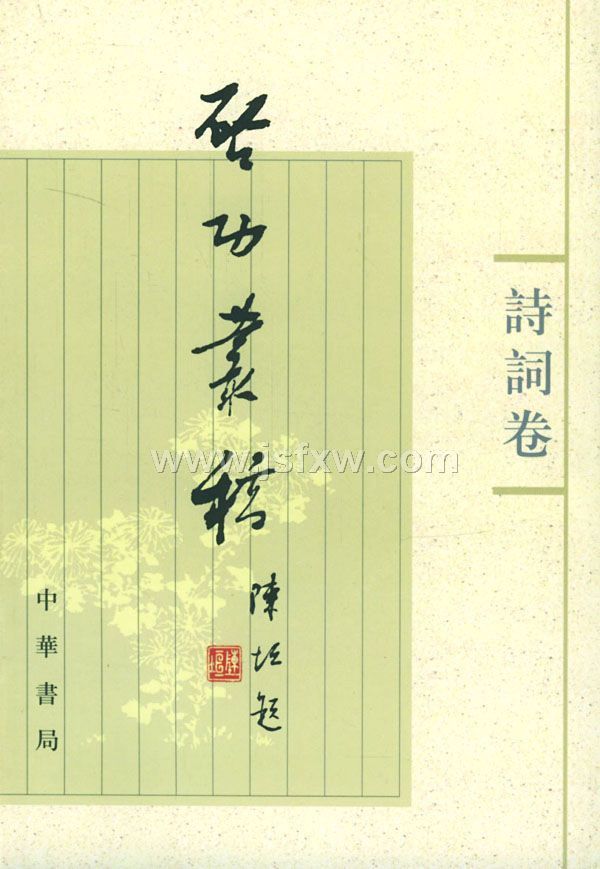 启功叢稿
陳垣題
陳垣
詩詞卷
中華書局
www.jsfxw.com